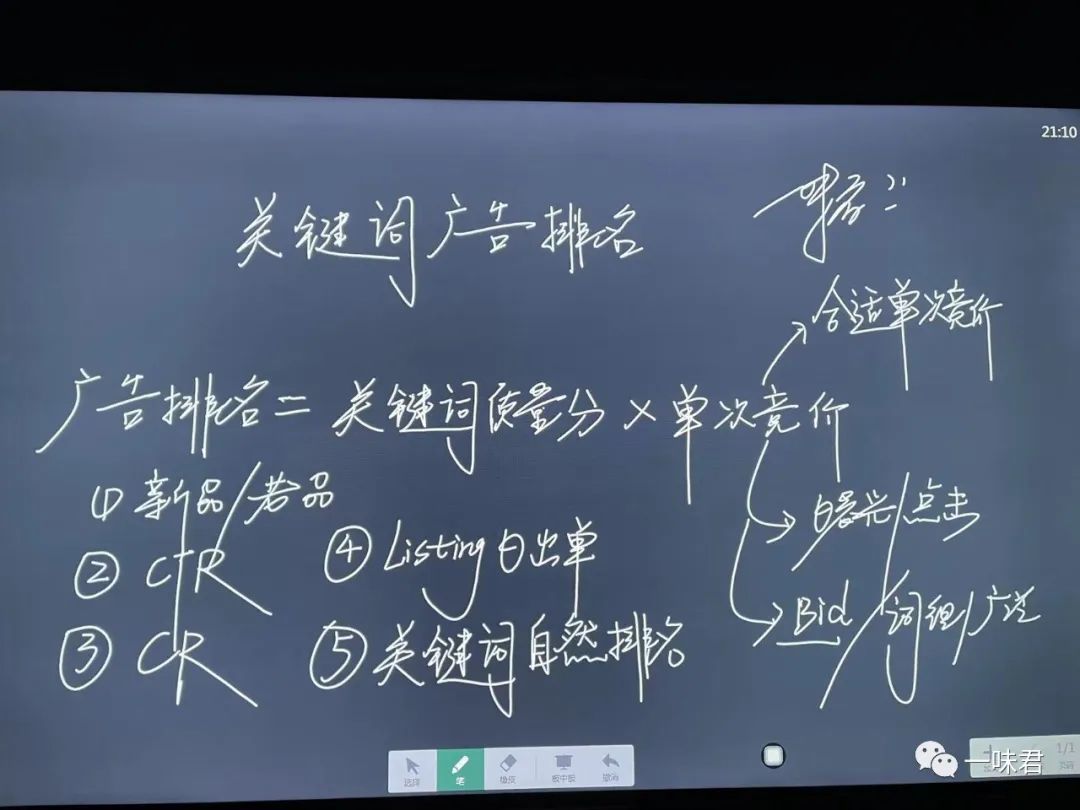 21:10
关键词广告排名
合适单次竞价
广告排名=关键词质量分×单次竞价
① 新品/老品
曝光/点击
② CTR
④ Listing日出单
Bid/词组/广泛
③ CR
⑤ 关键词自然排名
选择 笔 橡皮 板中板 撤消
一味君
1/1